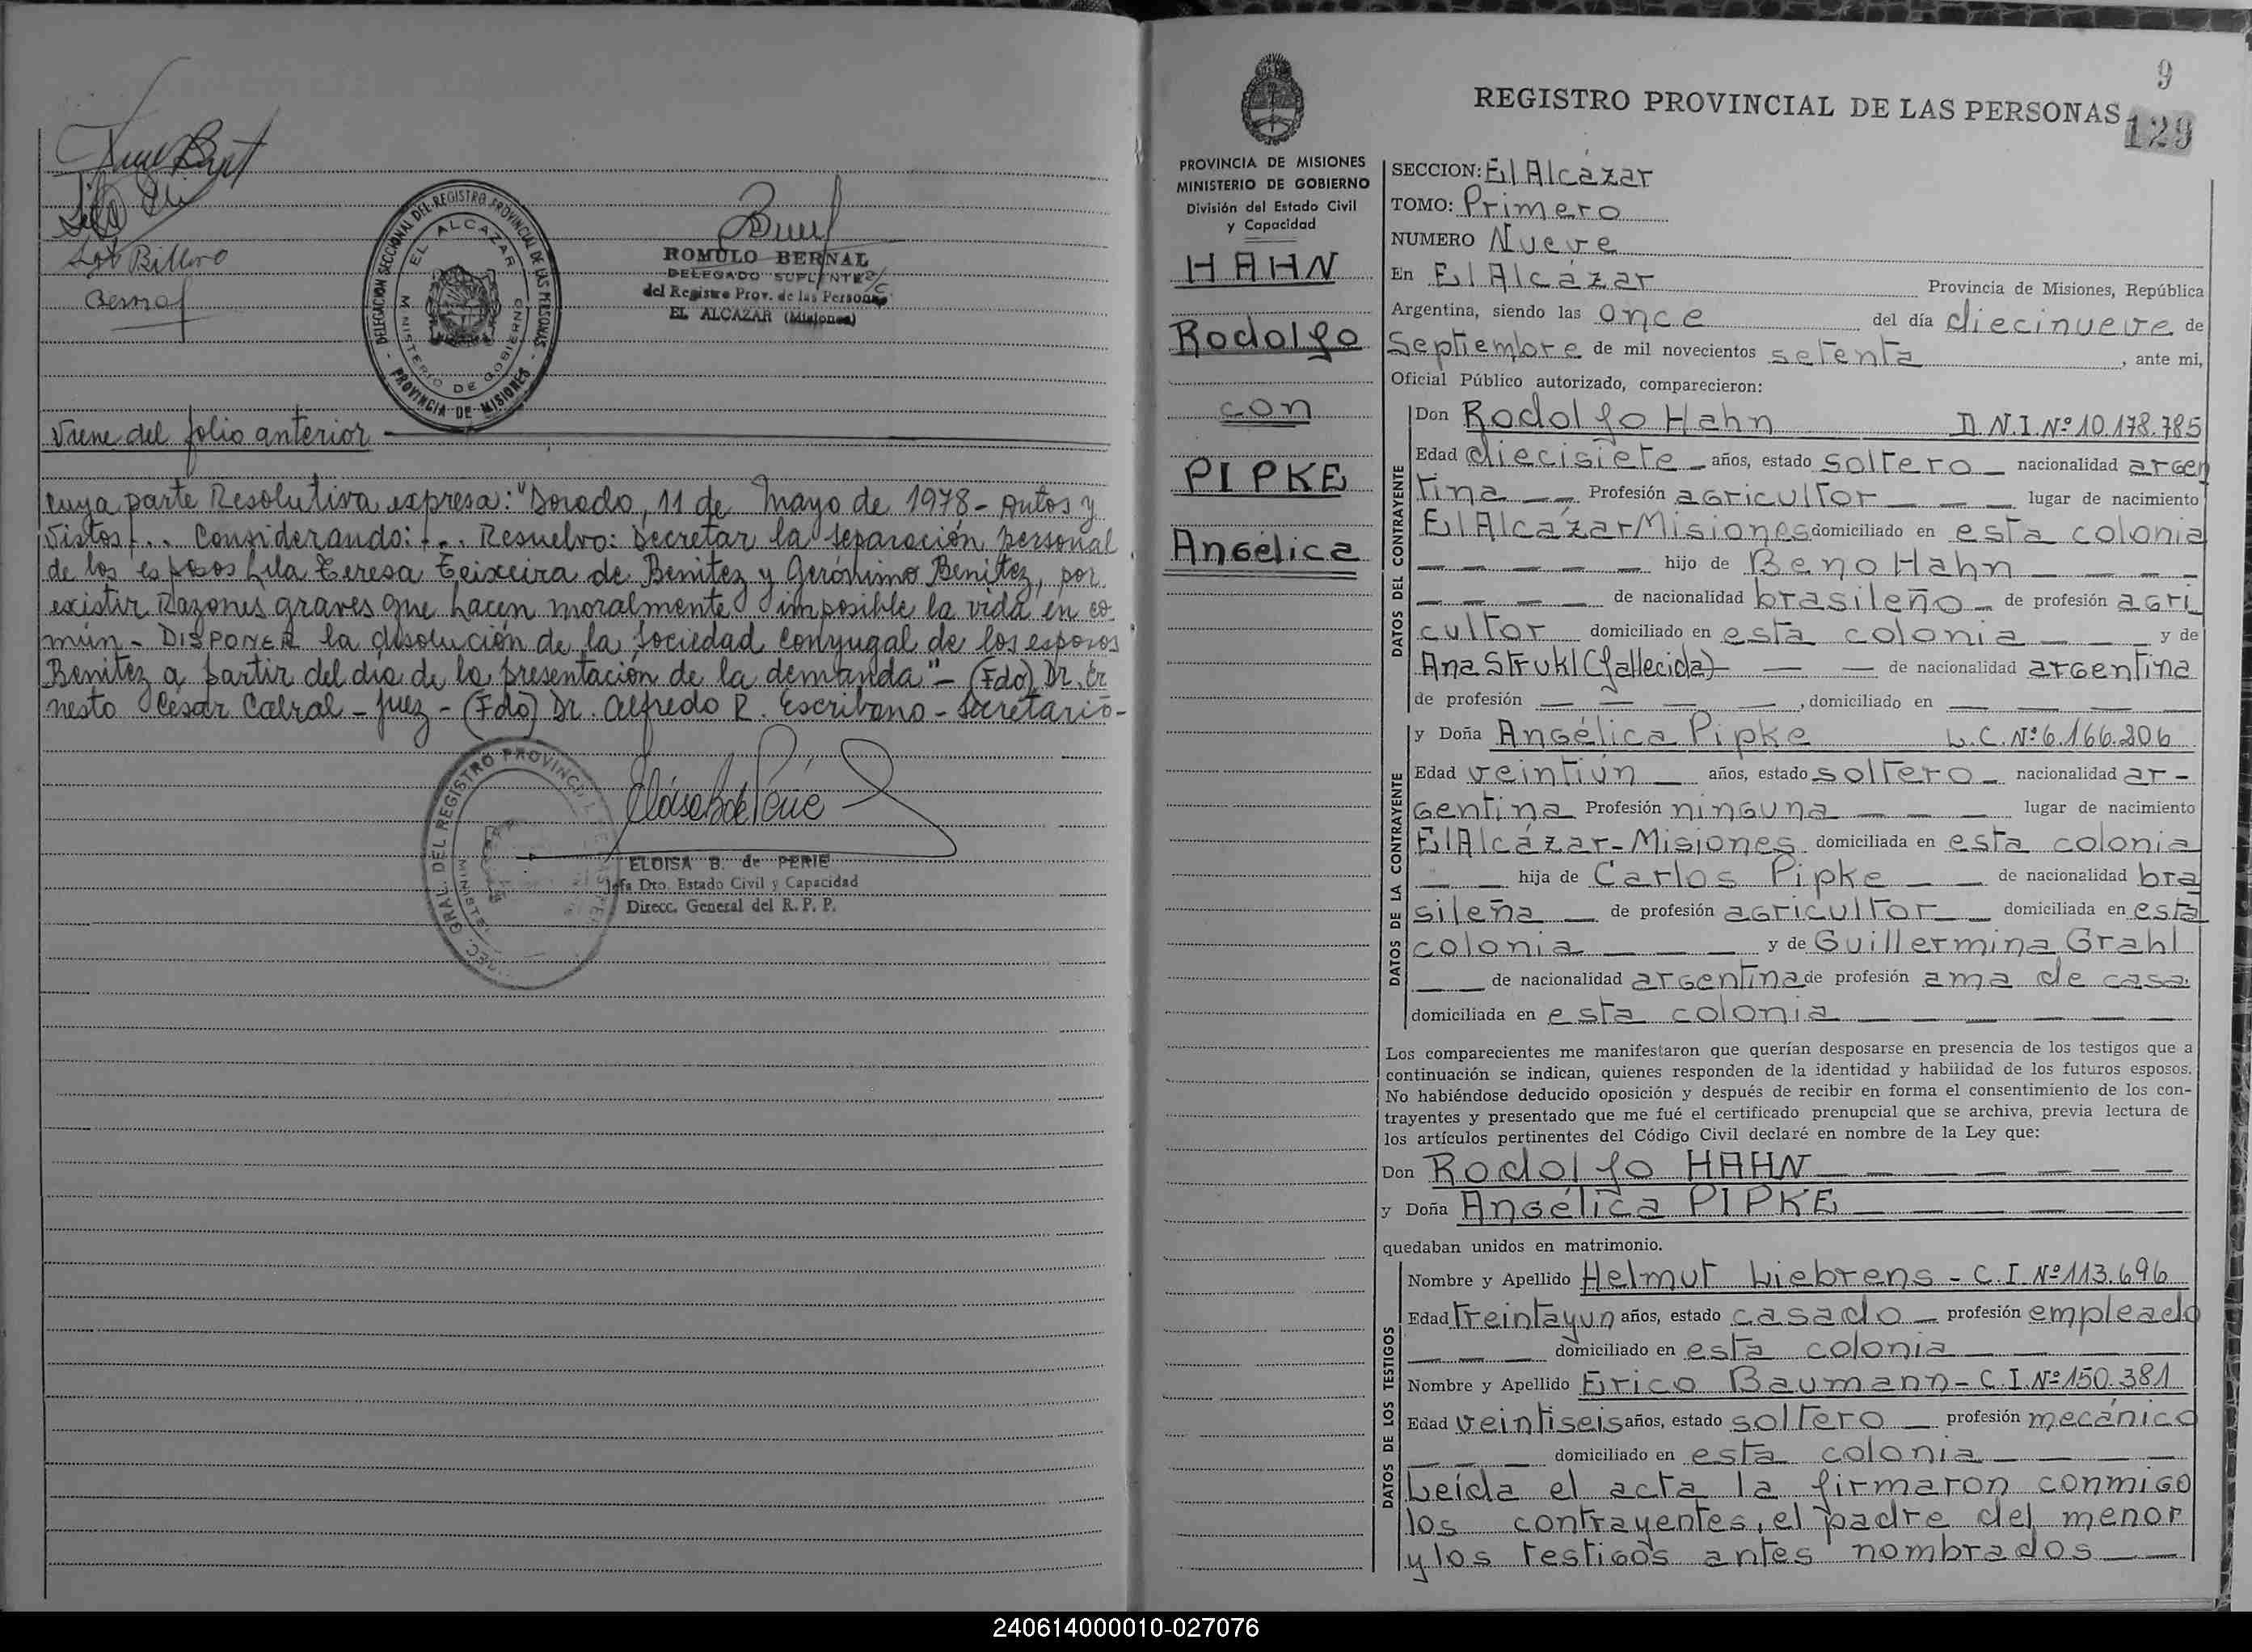 Sgt Billero
Bernal
DELEGACION SECCIONAL DEL REGISTRO PROVINCIAL DE LAS PERSONAS - PROVINCIA DE MISIONES -
EL ALCAZAR
MINISTERIO DE GOBIERNO
ROMULO BERNAL
DELEGADO SUPLENTE
del Registro Prov. de las Personas
EL ALCAZAR (Misiones)
Viene del folio anterior
cuya parte Resolutiva expresa: "Dorado, 11 de Mayo de 1978 - Autos y
Vistos: ... Considerando: ... Resuelvo: Decretar la separación personal
de los esposos Lila Teresa Teixeira de Benitez y Gerónimo Benitez, por
existir Razones graves que hacen moralmente imposible la vida en co
mún - DISPONER la disolución de la Sociedad conyugal de los esposos
Benitez a partir del día de la presentación de la demanda" - (Fdo) Dr. Er
nesto César Cabral - Juez - (Fdo) Dr. Alfredo R. Escribano - Secretario -
ELOISA B. de PERIE
Jefa Dto. Estado Civil y Capacidad
Direcc. General del R. P. P.
9
REGISTRO PROVINCIAL DE LAS PERSONAS
129
PROVINCIA DE MISIONES
MINISTERIO DE GOBIERNO
División del Estado Civil
y Capacidad
HAHN
Rodolfo
con
PIPKE
Angélica
SECCION: El Alcázar
TOMO: Primero
NUMERO Nueve
En El Alcázar Provincia de Misiones, República
Argentina, siendo las once del día diecinueve de
Septiembre de mil novecientos setenta, ante mi,
Oficial Público autorizado, comparecieron:
DATOS DEL CONTRAYENTE
Don Rodolfo Hahn D.N.I. Nº 10.178.785
Edad diecisiete años, estado soltero nacionalidad argen
tina Profesión agricultor lugar de nacimiento
El Alcázar Misiones domiciliado en esta colonia
hijo de Beno Hahn
de nacionalidad brasileño de profesión agri
cultor domiciliado en esta colonia y de
Ana Strukl (fallecida) de nacionalidad argentina
de profesión , domiciliado en
DATOS DE LA CONTRAYENTE
y Doña Angélica Pipke L.C. Nº 6.166.206
Edad veintiún años, estado soltero nacionalidad ar-
gentina Profesión ninguna lugar de nacimiento
El Alcázar-Misiones domiciliada en esta colonia
hija de Carlos Pipke de nacionalidad bra
sileña de profesión agricultor domiciliada en esta
colonia y de Guillermina Grahl
de nacionalidad argentina de profesión ama de casa
domiciliada en esta colonia
Los comparecientes me manifestaron que querían desposarse en presencia de los testigos que a
continuación se indican, quienes responden de la identidad y habilidad de los futuros esposos.
No habiéndose deducido oposición y después de recibir en forma el consentimiento de los con-
trayentes y presentado que me fué el certificado prenupcial que se archiva, previa lectura de
los artículos pertinentes del Código Civil declaré en nombre de la Ley que:
Don Rodolfo HAHN
y Doña Angélica PIPKE
quedaban unidos en matrimonio.
DATOS DE LOS TESTIGOS
Nombre y Apellido Helmut Liebrens - C.I. Nº 113.696
Edad treintayun años, estado casado profesión empleado
domiciliado en esta colonia
Nombre y Apellido Erico Baumann - C.I. Nº 150.381
Edad veintiseis años, estado soltero profesión mecánico
domiciliado en esta colonia
Leída el acta la firmaron conmigo
los contrayentes, el padre del menor
y los testigos antes nombrados
240614000010-027076